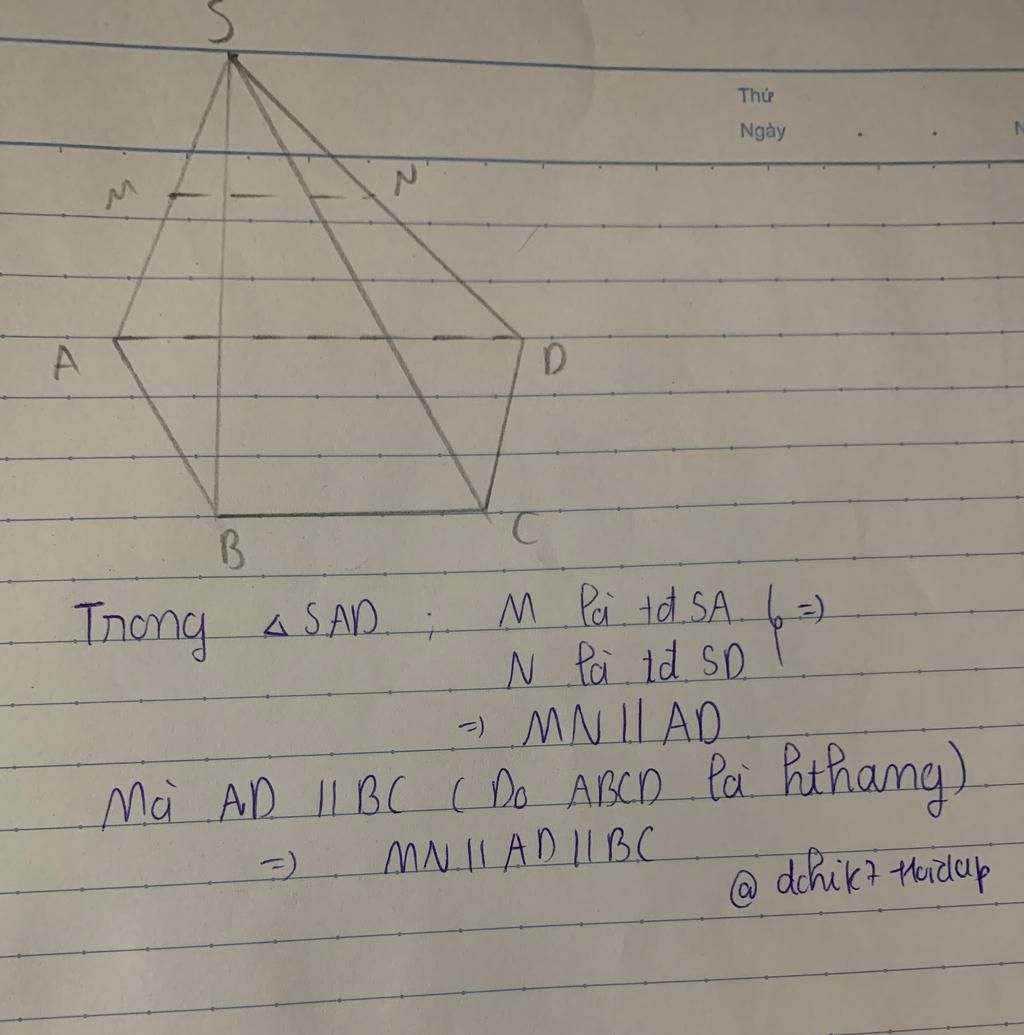 S
Thứ
Ngày
M N
A D
B C
Trong △ SAD ; M là tđ SA } =)
N là tđ SD
=) MN // AD
Mà AD // BC ( Do ABCD là hthang)
=) MN // AD // BC
@ dchik7